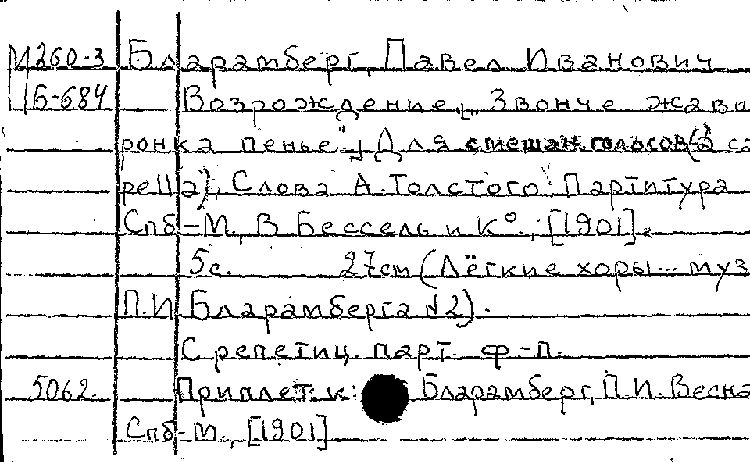 М260-3 Бларамберг, Павел Иванович
Б-684 Возрождение „ Звонче жаво
ронка пенье". Для смешан. голосов (a ca
pella). Слова А. Толстого. Партитура
Спб-М., В. Бессель и Ко., [1901].
5с. 27cm (Лёгкие хоры... муз
П.И Бларамберга №2).
С репетиц. парт. ф-п.
5062. Приплет. к: Бларамберг, П.И. Весна
Спб-М., [1901]